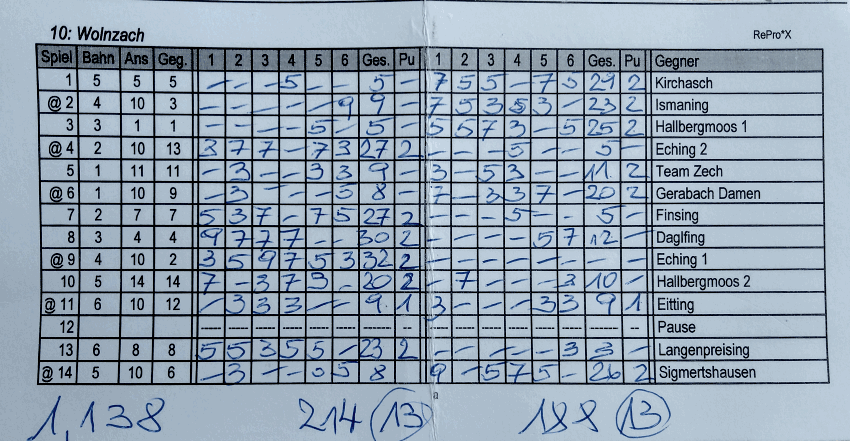 10: Wolnzach RePro*X
Spiel Bahn Ans Geg. 1 2 3 4 5 6 Ges. Pu 1 2 3 4 5 6 Ges. Pu Gegner
1 5 5 5 - - - 5 - - 5 - 7 5 5 - 7 5 29 2 Kirchasch
@ 2 4 10 3 - - - - - 9 9 - 7 5 3 5 3 - 23 2 Ismaning
3 3 1 1 - - - - 5 - 5 - 5 5 7 3 - 5 25 2 Hallbergmoos 1
@ 4 2 10 13 3 7 7 - 7 3 27 2 - - - 5 - - 5 - Eching 2
5 1 11 11 - 3 - - 3 3 9 - 3 - 5 3 - - 11 2 Team Zech
@ 6 1 10 9 - 3 - - - 5 8 - 7 - 3 3 7 - 20 2 Gerabach Damen
7 2 7 7 5 3 7 - 7 5 27 2 - - - 5 - - 5 - Finsing
8 3 4 4 9 7 7 7 - - 30 2 - - - - 5 7 12 - Daglfing
@ 9 4 10 2 3 5 9 7 5 3 32 2 - - - - - - - - Eching 1
10 5 14 14 7 - 3 7 3 - 20 2 - 7 - - - 3 10 - Hallbergmoos 2
@ 11 6 10 12 - 3 3 3 - - 9 1 3 - - - 3 3 9 1 Eitting
12 ----- ----- ----- ----- ----- ----- ----- ----- ----- ----- ----- ----- ----- ----- ----- ----- Pause
13 6 8 8 5 5 3 5 5 - 23 2 - - - - - 3 3 - Langenpreising
@ 14 5 10 6 - 3 - - 0 5 8 - 9 - 5 7 5 - 26 2 Sigmertshausen
a
1,138 214 13 188 13